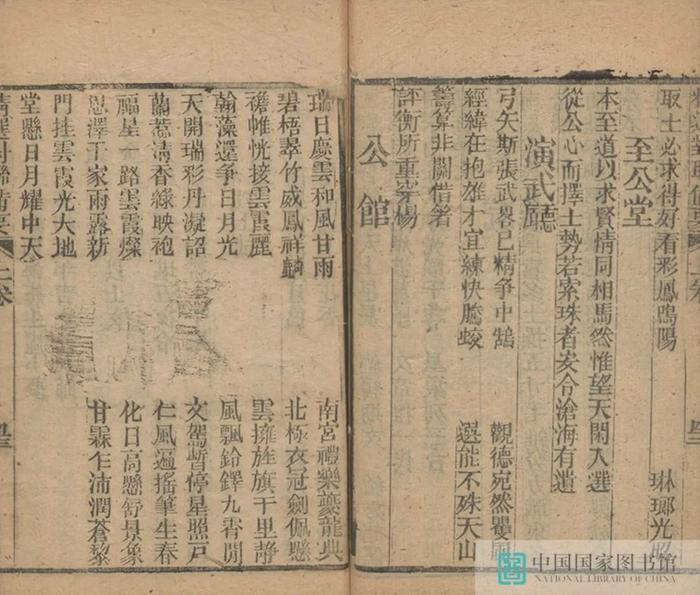 取士必求得好看彩鳳鳴陽 琳瑯光照
至公堂
本至道以求賢情同相馬然惟望天閑入選
從公心而擇士勢若索珠者令滄海有遺
演武廳
弓矢斯張武畧已精爭中鵠 觀德宛然矍
經緯在抱雄才宜練快騰蛟 選能不殊天山
籌算非關借箸
評衡所重穿楊
公館
瑞日慶雲和風甘雨 南宮禮樂夔龍典
碧梧翠竹威鳳祥麟 北極衣冠劍佩懸
襜帷恍接雲霞麗 雲擁旌旗千里靜
翰藻還爭日月光 風飄鈴鐸九霄聞
天開瑞彩丹凝詔 文駕暫停星照戶
蘭惹清香綠映袍 仁風遍搖筆生春
福星一路雲霞燦 化日高懸舒景象
恩澤千家雨露新 甘霖乍沛潤蒼黎
門挂雲霞光大地
堂懸日月耀中天
上卷
中国国家图书馆
NATIONAL LIBRARY OF CHINA